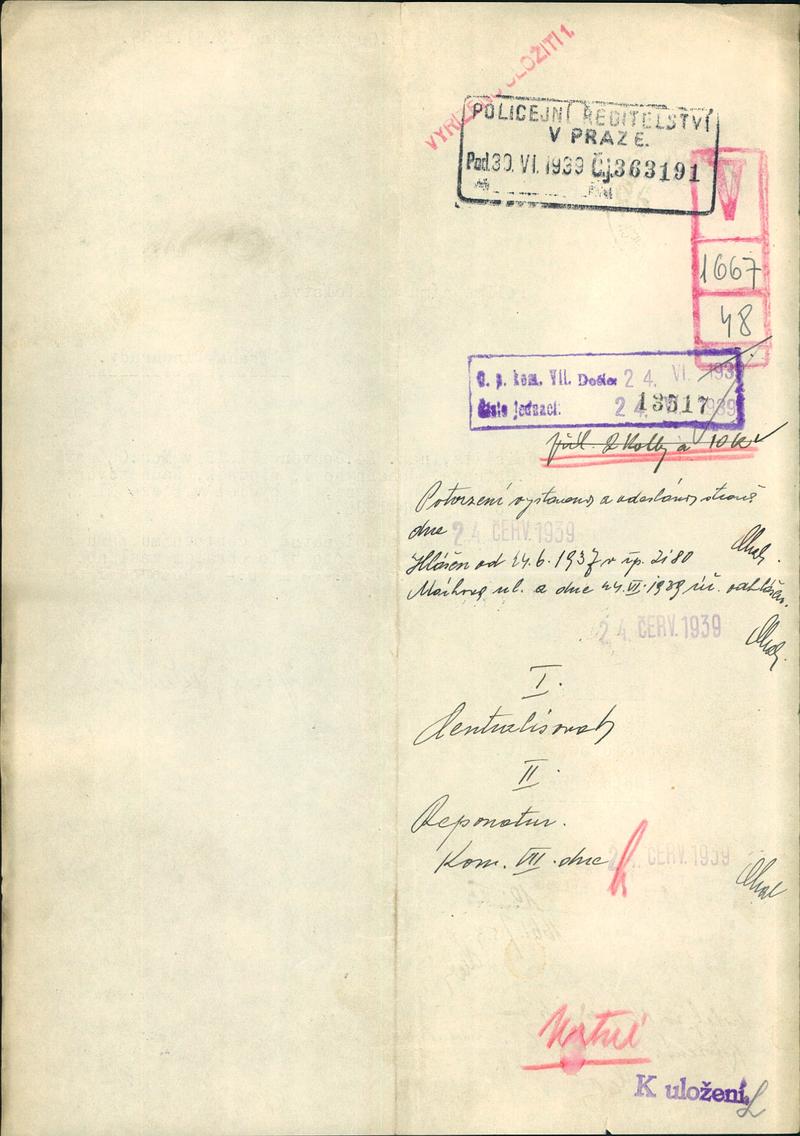 VYŘÍZENO ULOŽITI 1.
POLICEJNÍ ŘEDITELSTVÍ
V PRAZE.
Pod. 30. VI. 1939 Čj. 363191
1667
48
O. p. kom. VII. Došlo: 24. VI. 1939
Číslo jednací: 13517
příl. 2 kolky a 10 K
Potvrzení vystaveno a odesláno straně
dne 24. ČERV. 1939
Hlášen od 14.6.1937 v čp. 2180
ul. a dne 24.VI.1939 odhlášen.
24. ČERV. 1939
I.
Centralisovat
II.
Reponatur.
Kom. VII. dne 24. ČERV. 1939
K uložení